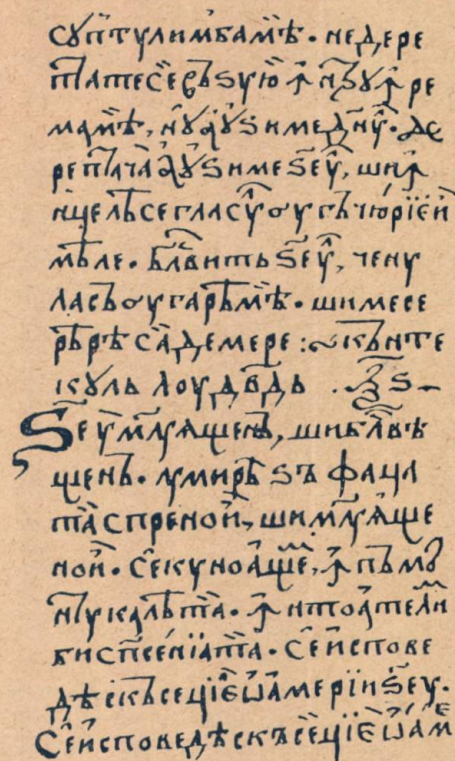 сꙋптꙋлимбамѣ· недере
птатесе҇рьѕꙋю ꙟнзꙋꙟре
мамѣ, нꙋаꙋѕимеднꙋ· де
рептача аꙋѕимеѕеꙋ, шиꙟ
нцелѣсегласꙋ оугъчюріеи
мѣле· бл҃витьѕеꙋ, ченꙋ
ласъоугарѣмѣ· шимесе
рѣрѣ са де мере :~ кънте
кꙋль лоу дв҃дь · ѯѕ–
Ѕеꙋмлꙋящень, шибл҃вѣ
щень· лꙋмирѣ ѕъ фаца
таспреной, шимлꙋяще
ной· секꙋноаще, ꙟпъмѫ
нтꙋкалѣта· ꙟнтоателӑ
бисп҃сеніата· се҇исповѣ
дѣскъсеціеѡамеріиѕеꙋ·
се҇исповедѣскъсеціеѡам